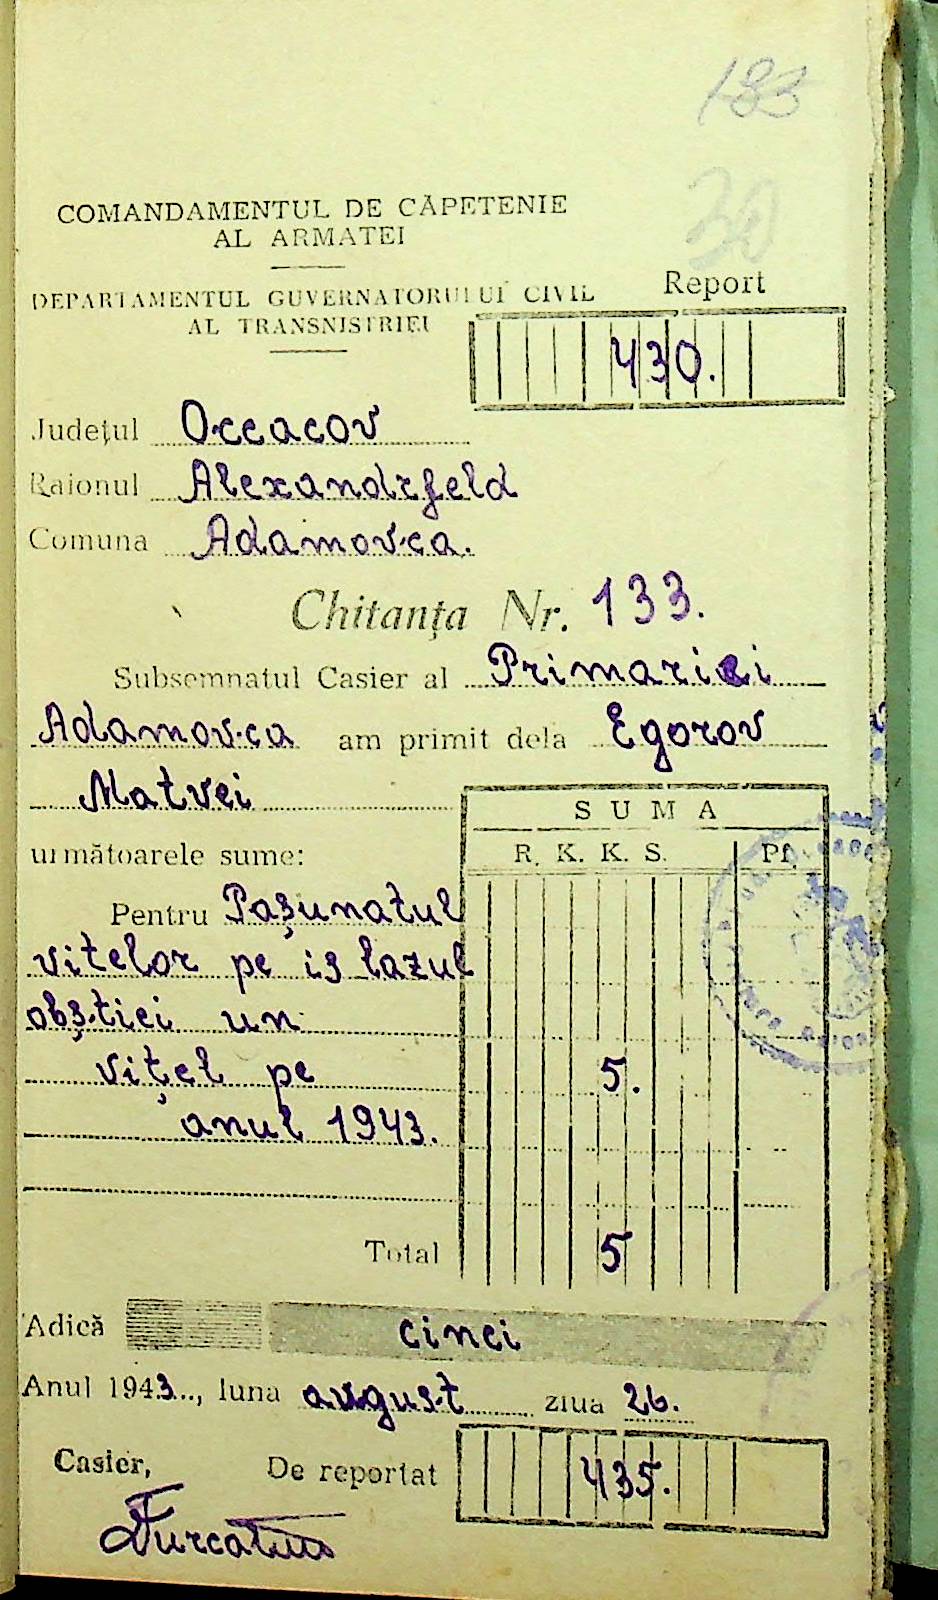 133
30
COMANDAMENTUL DE CĂPETENIE
AL ARMATEI
DEPARTAMENTUL GUVERNATORULUI CIVIL
AL TRANSNISTRIEI
Report
430.
Județul Oceacov
Raionul Alexandrfeld
Comuna Adamovca.
Chitanța Nr. 133.
Subsemnatul Casier al Primariei
Adamovca am primit dela Egorov
Matvei
următoarele sume:
SUMA
R. K. K. S. Pf.
Pentru Pașunatul
vitelor pe islazul
obștiei un
vițel pe 5.
anul 1943.
Total 5
Adică cinci
Anul 1943.., luna august ziua 26.
Casier, De reportat 435.